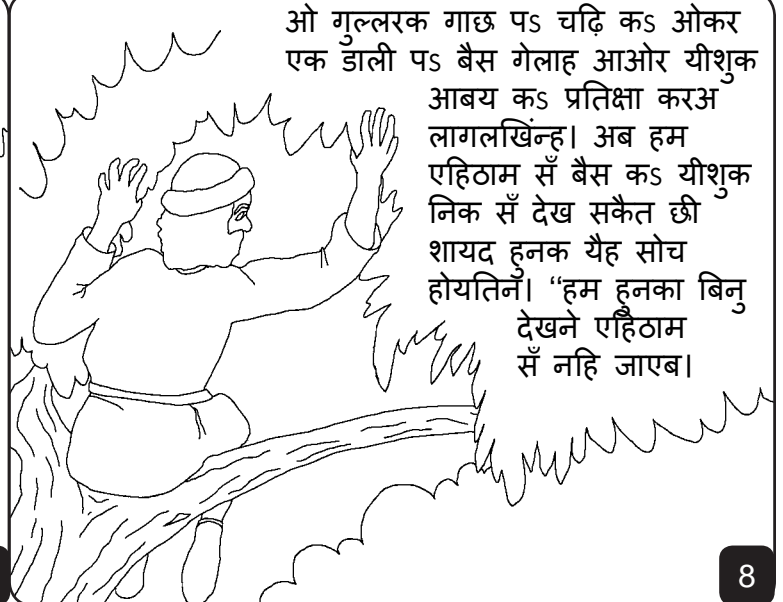 ओ गुल्लरक गाछ पऽ चढ़ि कऽ ओकर
एक डाली पऽ बैस गेलाह आओर यीशुक
आबय कऽ प्रतिक्षा करअ
लागलखिंन्ह। अब हम
एहिठाम सँ बैस कऽ यीशुक
निक सँ देख सकैत छी
शायद हुनक यैह सोच
होयतिन। “हम हुनका बिनु
देखने एहिठाम
सँ नहि जाएब।
8